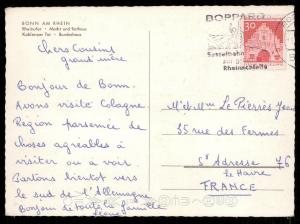 BONN AM RHEIN
Rheinufer · Markt und Rathaus
Koblenzer Tor · Bundeshaus
BOPPARD
Sesselbahn
Rheinschleife
30
Chers Cousins
grand'mère
Bonjour de Bonn.
Avons visité Cologne
Région parsemée de
choses agréables à
visiter ou a voir.
Partons bientôt vers
le sud de l'Allemagne
Bonjour à toute la famille
M et Mme Le Pierrès
35 rue des Fermes
S^te Adresse 76
le Havre
FRANCE